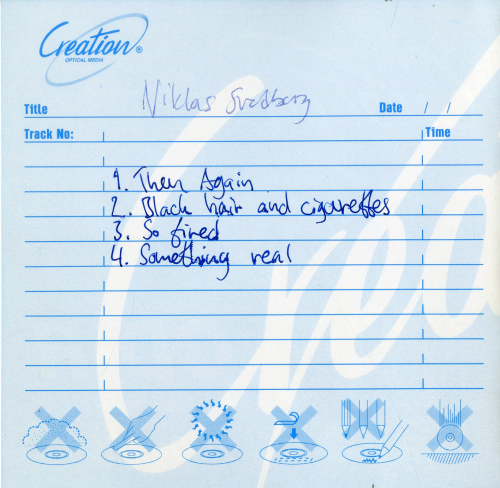 Creation®
OPTICAL MEDIA
Niklas Svedberg
Title Date / /
Track No: Time
1. Then Again
2. Black hair and cigarettes
3. So fired
4. Something real
Crea